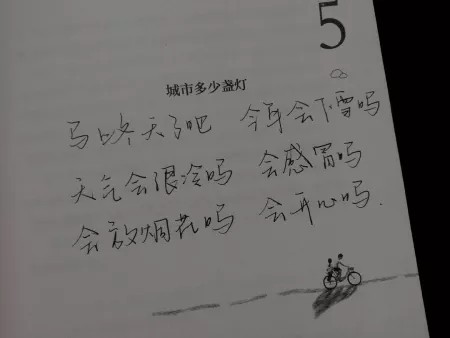 5
城市多少盏灯
马上冬天了吧 今年会下雪吗
天气会很冷吗 会感冒吗
会放烟花吗 会开心吗.